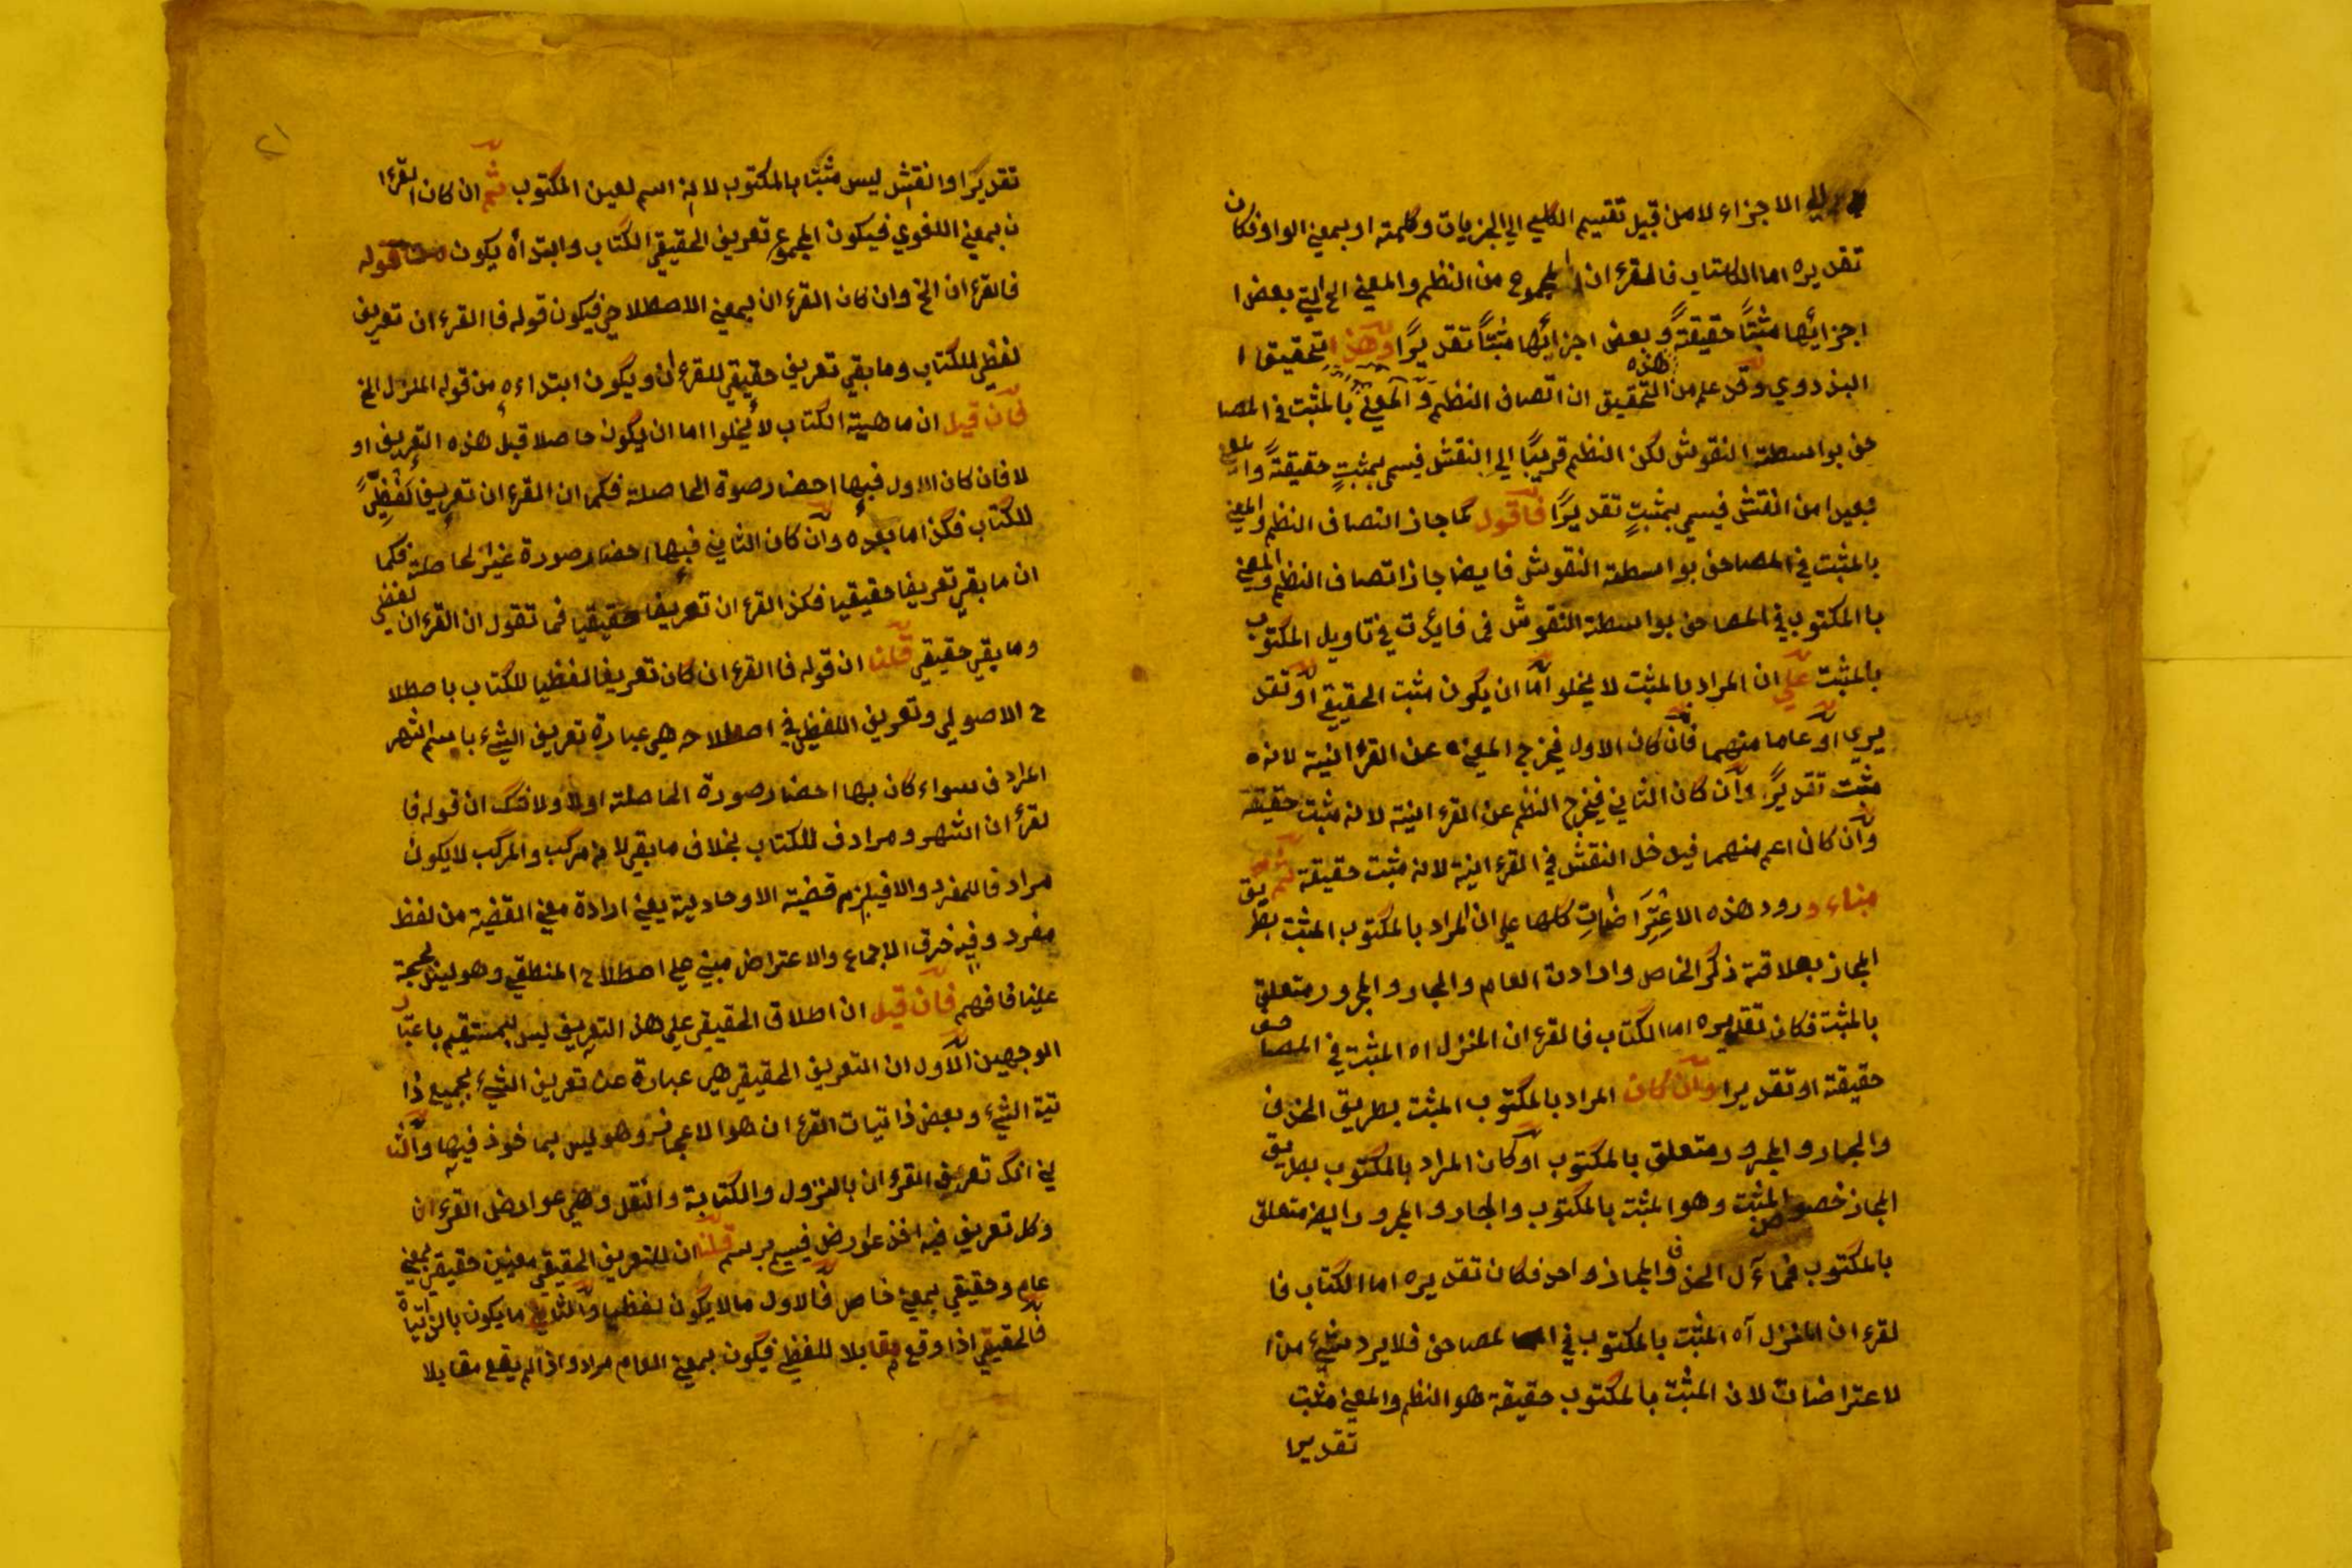 الي الاجزاء لا من قبيل تقسيم الكلي الي الجزيات وكلمة او بمعني الواو فكان
تقديره اما الكتاب فالقرءان المجموع من النظم والمعني الخ التي بعض ا
اجزائها مثبتًا حقيقةً وبعض اجزائها مثبتًا تقديرًا وهذا التحقيق ا
البزدوي وقد علم من هذه التحقيق ان اتصاف النظم والمعني بالمثبت في المصا
حف بواسطة النقوش لكن النظم قريبًا الي النقش فيسمي بمثبتٍ حقيقةً والمعني
بعيدا من النقش فيسمي بمثبتٍ تقديرًا فاقول كما جاز اتصاف النظم والمعني
بالمثبت في المصاحف بواسطة النقوش فايضا جاز اتصاف النظم والمعني
با المكتوب في المصاحف بواسطة النقوش في فايدت في تاويل المكتوب
بالمثبت علي ان المراد بالمثبت لا يخلو اما ان يكون مثبت الحقيقي او تقد
يري او عاما منهما فان كان الاول فيخرج المعني عن القرءانية لانه
مثبت تقديرًا وان كان الثاني فيخرج النظم عن القرءانية لانه مثبت حقيقة
وان كان اعم منهما فيدخل النقش في القرءانية لانه مثبت حقيقة ثم يق
مبناء ورود هذه الاعتراضات كلها علي ان المراد بالمكتوب المثبت بطر
المجاز بعلاقة ذكر الخاص وارادت العام والجار والمجرور متعلق
بالمثبت فكان تقديره اما الكتاب فالقرءان المنزل اه المثبت في المصاحف
حقيقة او تقديرا وان كان المراد بالمكتوب المثبت بطريق الحذف
والجار والمجرور متعلق بالمكتوب او كان المراد بالمكتوب بطريق
المجاز خصوص المثبت وهو المثبت بالمكتوب والجار والمجرور ايضا متعلق
بالمكتوب فمأل الحذف والمجاز واحد فكان تقديره اما الكتاب فا
لقرءان المنزل آه المثبت بالمكتوب في المصاحف فلا يرد شيء من ا
لاعتراضات لان المثبت بالمكتوب حقيقة هو النظم والمعني مثبت
تقديرا
٢١
تقديرًا والنقش ليس مثبتا بالمكتوب لانه اسم لعين المكتوب ثم ان كان القرءا
ن بمعني اللغوي فيكون المجموع تعريف الحقيقي الكتاب وابتدأه يكون قوله
فالقرءان الخ وان كان القرءان بمعني الاصطلاحي فيكون قوله فا القرءان تعريف
لفظي للكتاب وما بقي تعريف حقيقي للقرءان ويكون ابتداءه من قوله المنزل الخ
فان قيل ان ماهية الكتاب لا يخلوا اما ان يكون حاصلا قبل هذه التعريف او
لا فان كان الاول فبها احضار صوة الحاصلة فكما ان القرءان تعريفا لفظيًّا
للكتاب فكذا ما بعده وان كان الثاني فبها احضار صورة غير الحاصلة فكما
ان ما بقي تعريفا حقيقيا فكذا القرءان تعريفا حقيقيا فما تقول ان القرءان لفظي
وما بقي حقيقي قلنا ان قوله فا القرءان كان تعريفا لفظيا للكتاب باصطلا
ح الاصولي وتعريف اللفظي في اصطلاحه هي عبارة تعريف الشيء باسم اشهر
مرادف سواء كان بها احضار صورة الحاصلة اولا ولا شك ان قوله فا
لقرءان اشهر ومرادف للكتاب بخلاف ما بقي لانه مركب والمركب لا يكون
مرادفا للمفرد والا فيلزم قضية الاوحادية يعني ارادة معني القضية من لفظ
مفرد وفيه خرق الاجماع والاعتراض مبني علي اصطلاح المنطقي وهو ليس بحجة
علينا فافهم فان قيل ان اطلاق الحقيقي علي هذا التعريف ليس بمستقيم باعتبار
الوجهين الاول ان التعريف الحقيقي هي عبارة عن تعريف الشيء بجميع ذا
تية الشيء وبعض ذاتيات القرءان هو الاعجاز وهو ليس بماخوذ فيها والثا
ني انك تعريف القرءان بالنزول والكتابة والنقل وهي عوارض القرءان
وكل تعريف فيه اخذ عوارض فيسمي برسم قلنا ان للتعريف الحقيقي معنيين حقيقي بمعني
عام وحقيقي بمعني خاص فالاول ما لا يكون لفظيا والثاني ما يكون بالذاتيات
فالحقيقي اذا وقع مقابلا للفظي فيكون بمعني العام مراد واذا لم يقع مقابلا